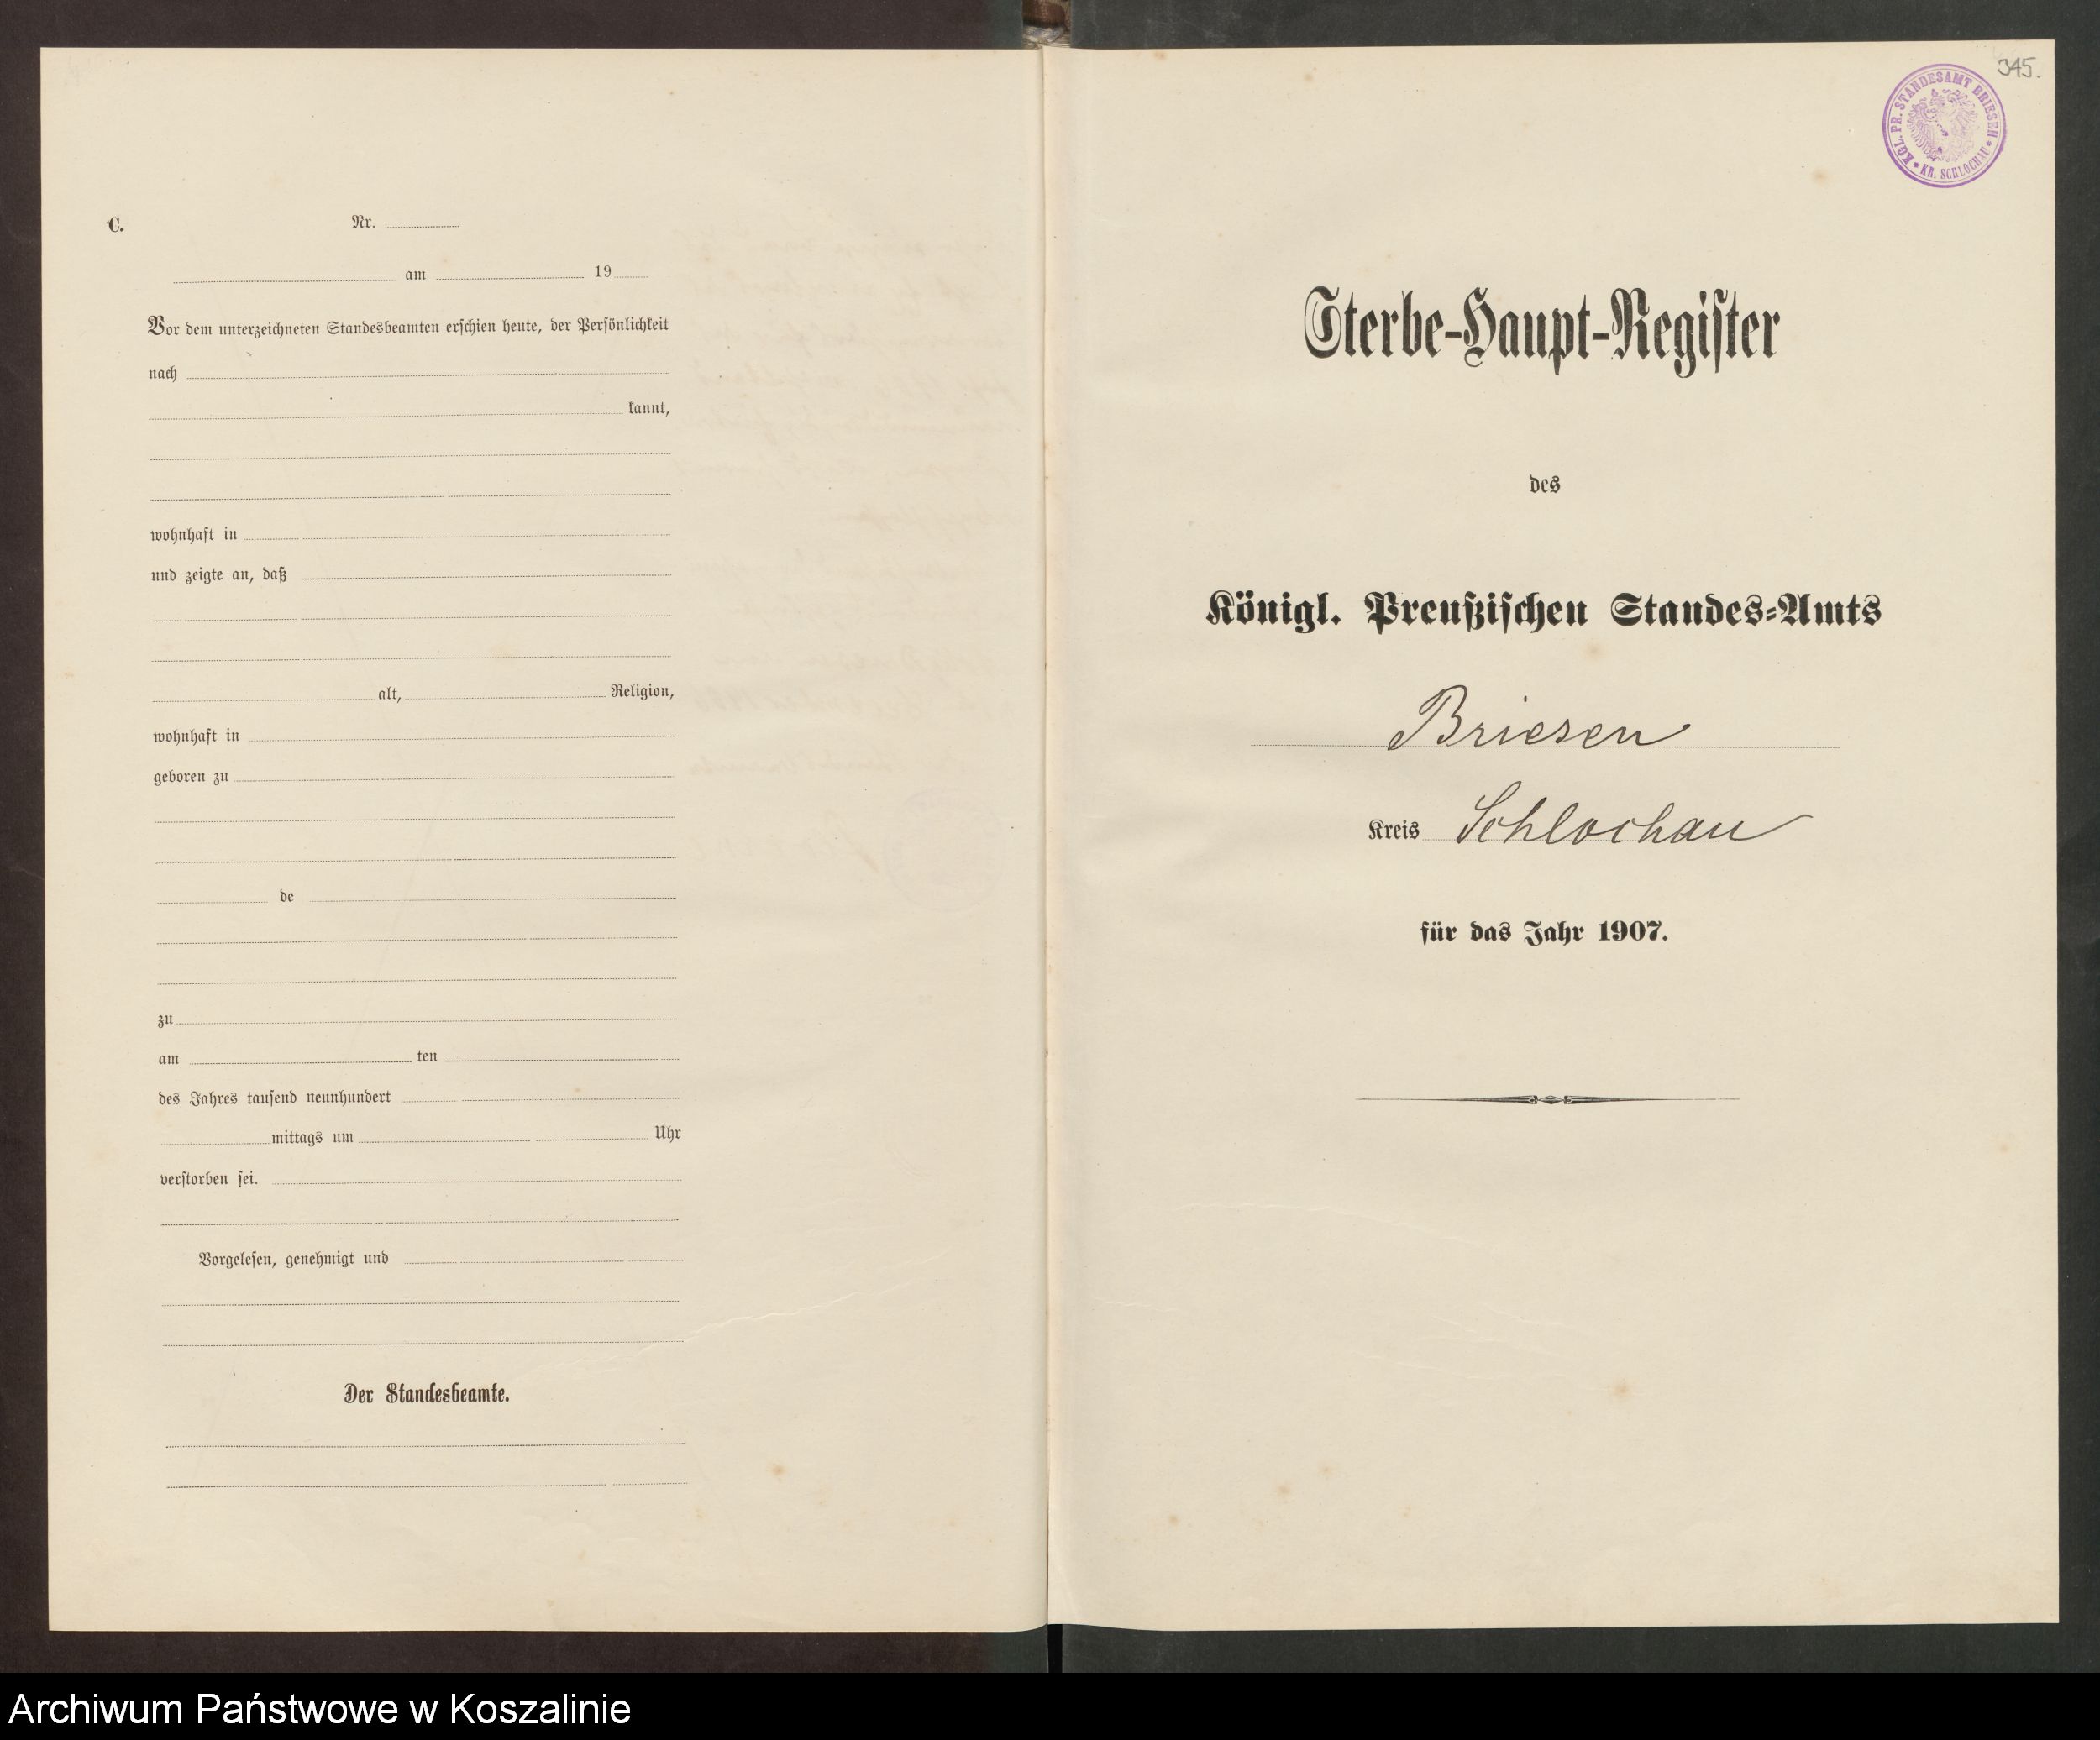 C.
Nr.
am 19
Vor dem unterzeichneten Standesbeamten erschien heute, der Persönlichkeit
nach
kannt,
wohnhaft in
und zeigte an, daß
alt, Religion,
wohnhaft in
geboren zu
de
zu
am ten
des Jahres tausend neunhundert
mittags um Uhr
verstorben sei.
Vorgelesen, genehmigt und
Der Standesbeamte.
345.
KGL. PR. STANDESAMT BRIESEN
KR. SCHLOCHAU
Sterbe-Haupt-Register
des
Königl. Preußischen Standes-Amts
Briesen
Kreis Schlochau
für das Jahr 1907.
Archiwum Państwowe w Koszalinie